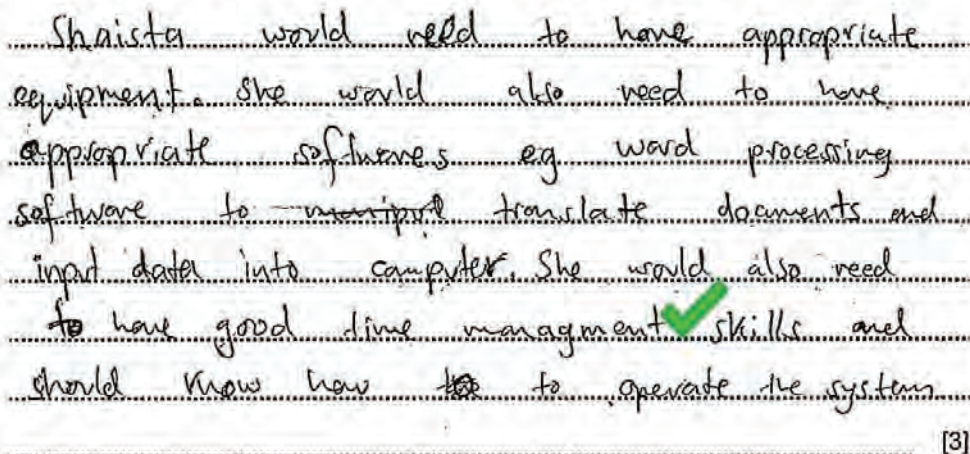 Shaista would need to have appropriate
equipment. She would also need to have
appropriate softwares eg word processing
software to manipul translate documents and
input data into computer. She would also need
to have good time managment skills and
should know how to to operate the system
[3]